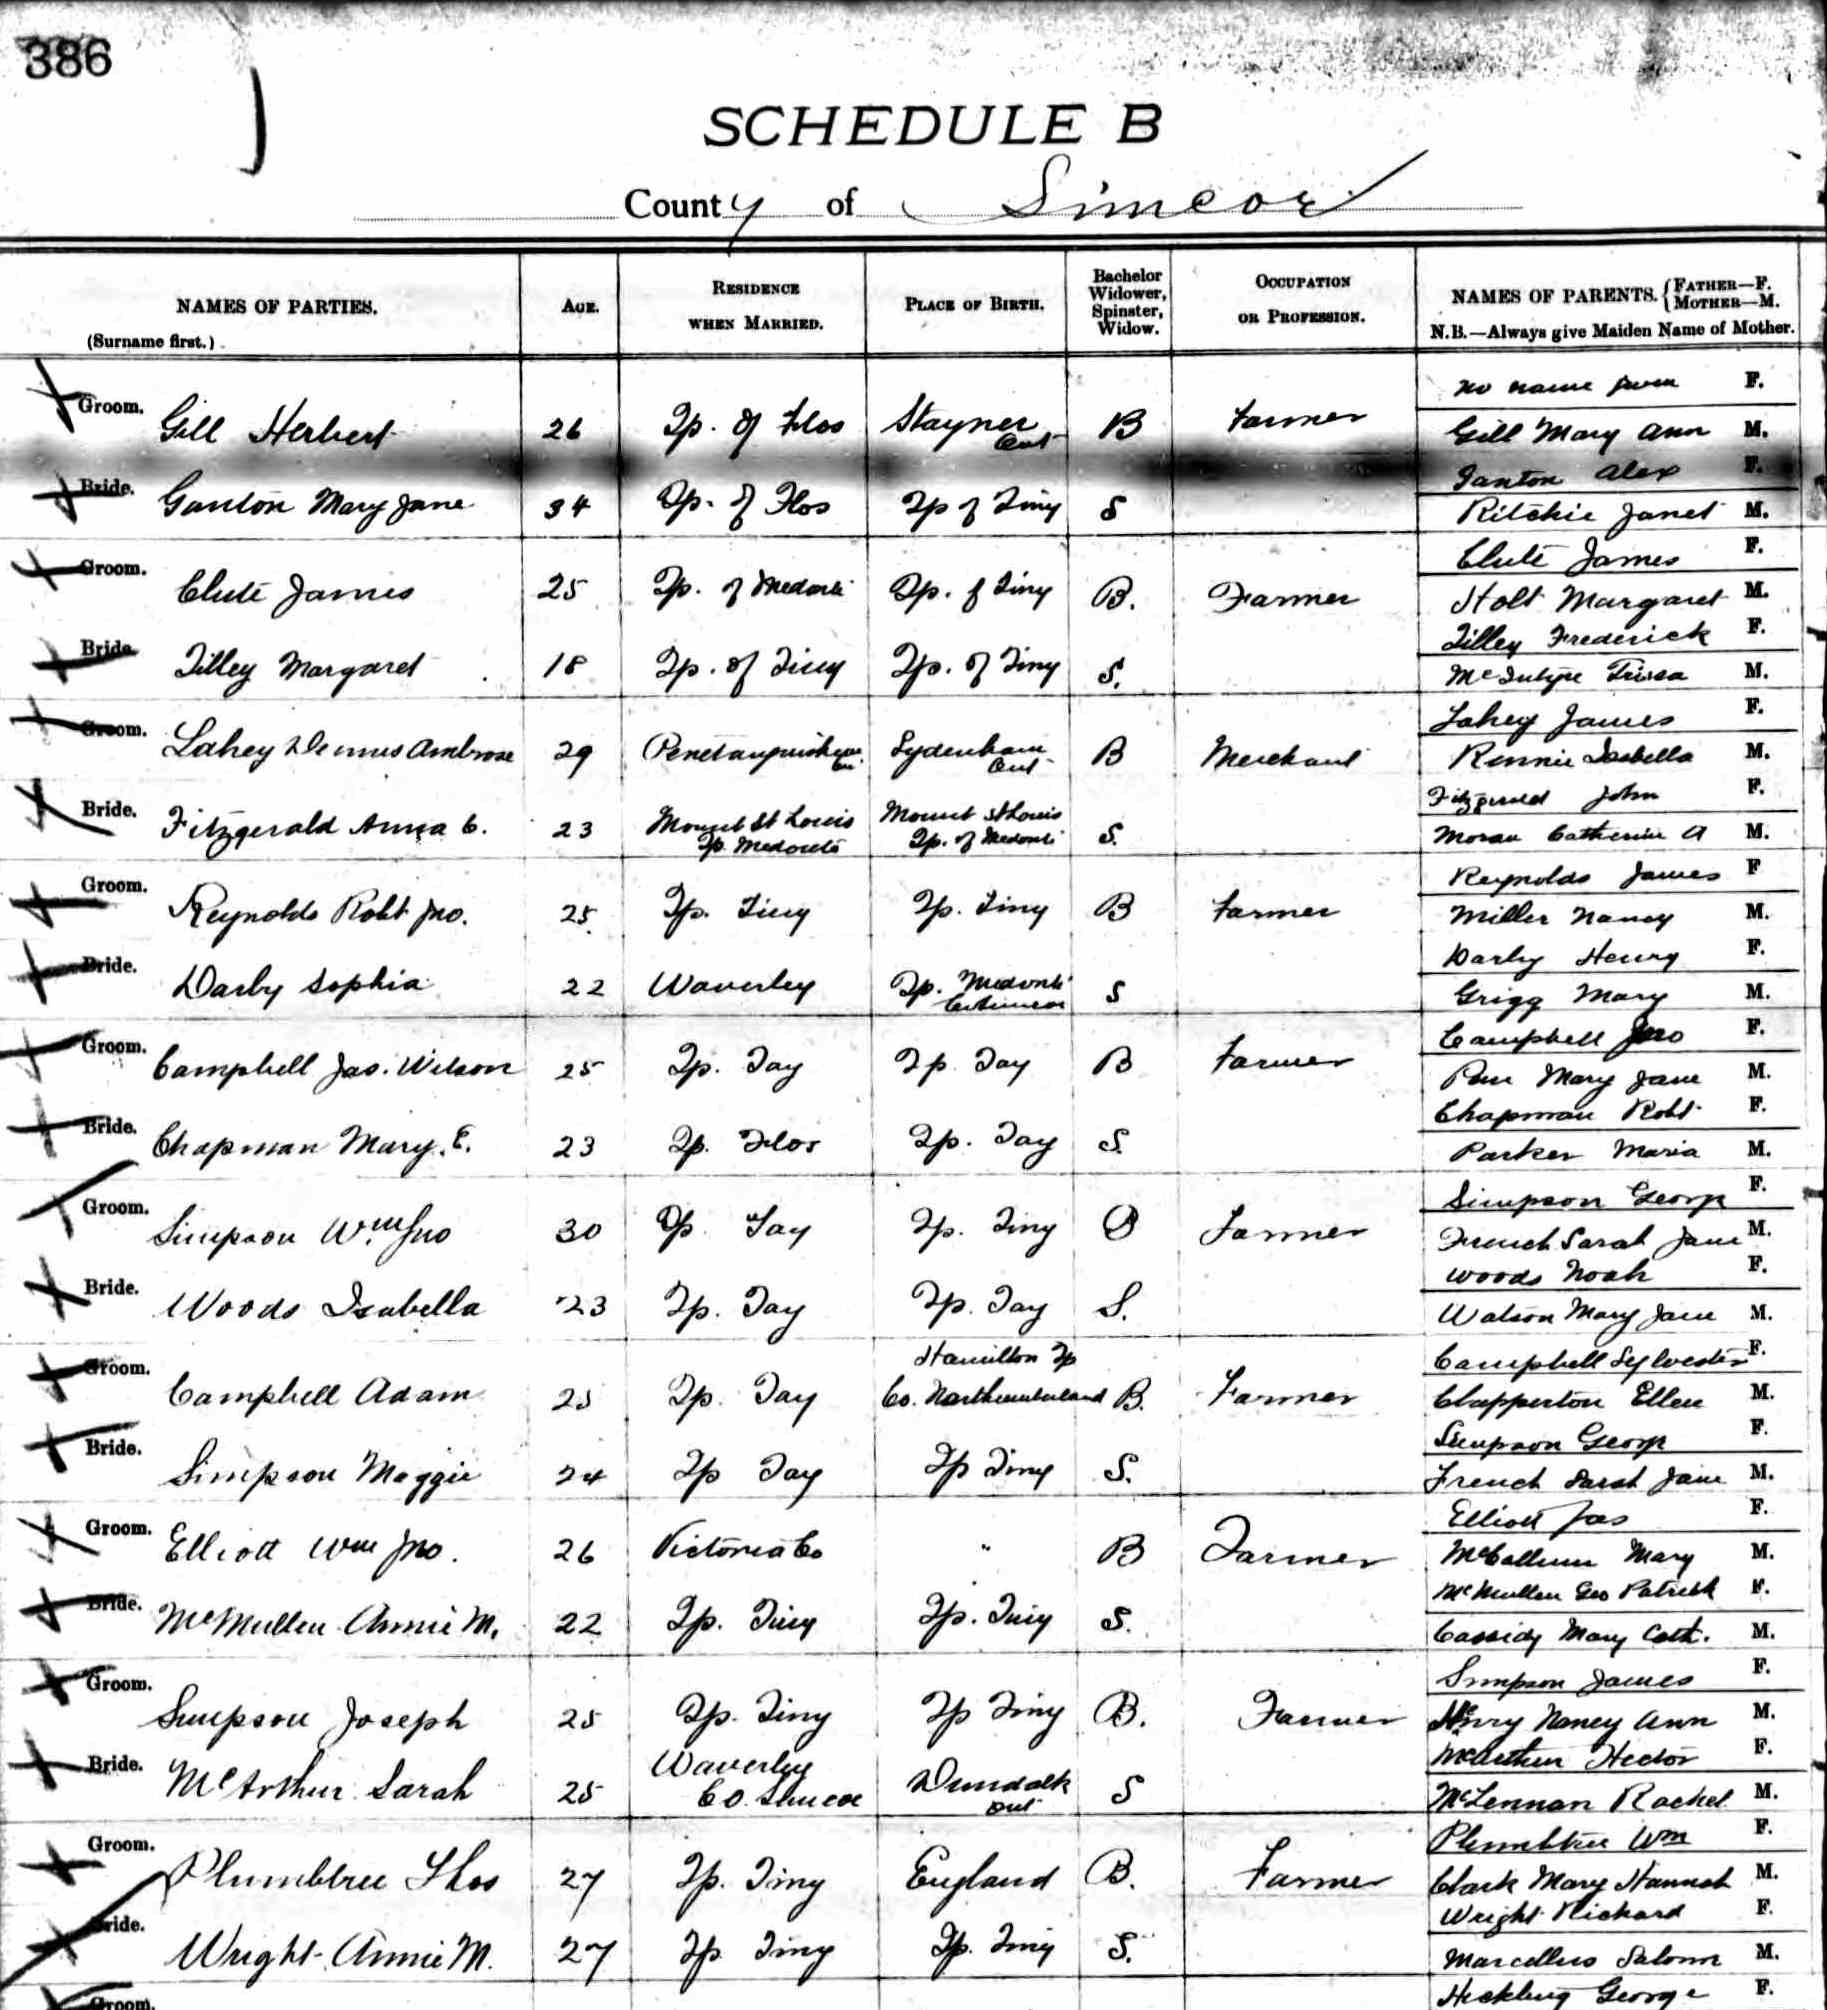 386
SCHEDULE B
County of Simcoe
NAMES OF PARTIES.
(Surname first.)
AGE.
RESIDENCE
WHEN MARRIED.
PLACE OF BIRTH.
Bachelor
Widower,
Spinster,
Widow.
OCCUPATION
OR PROFESSION.
NAMES OF PARENTS. { FATHER—F.
MOTHER—M.
N.B.—Always give Maiden Name of Mother.
no name given F.
Groom. Gill Herbert 26 Tp. of Flos Stayner Ont B Farmer Gill Mary Ann M.
Ganton Alex F.
Bride. Ganton Mary Jane 34 Tp. of Flos Tp of Tiny S Ritchie Janet M.
Clute James F.
Groom. Clute James 25 Tp. of Medonte Tp. of Tiny B. Farmer Holt Margaret M.
Tilley Frederick F.
Bride. Tilley Margaret 18 Tp. of Tiny Tp. of Tiny S. McIntyre M.
Lahey James F.
Groom. Lahey Dennis Ambrose 29 Penetanguishene Sydenham Ont B Merchant Rennie Isabella M.
Fitzgerald John F.
Bride. Fitzgerald Anna C. 23 Mount St Louis Tp. Medonte Mount St Louis Tp. of Medonte S. Moran Catherine A M.
Reynolds James F
Groom. Reynolds Robt Jno. 25 Tp. Tiny Tp. Tiny B Farmer Miller Nancy M.
Darby Henry F.
Bride. Darby Sophia 22 Waverley Tp. Medonte Co Simcoe S Grigg Mary M.
Campbell Jno F.
Groom. Campbell Jas. Wilson 25 Tp. Tay Tp. Tay B Farmer Mary Jane M.
Chapman Robt. F.
Bride. Chapman Mary. E. 23 Tp. Flos Tp. Tay S. Parker Maria M.
Simpson George F.
Groom. Simpson Wm Jno 30 Tp. Tay Tp. Tiny B Farmer French Sarah Jane M.
Woods Noah F.
Bride. Woods Isabella 23 Tp. Tay Tp. Tay S. Watson Mary Jane M.
Campbell Sylvester F.
Groom. Campbell Adam 25 Tp. Tay Hamilton Tp Co. Northumberland B. Farmer Clapperton Ellen M.
Simpson George F.
Bride. Simpson Maggie 24 Tp Tay Tp Tiny S. French Sarah Jane M.
Elliott Jas F.
Groom. Elliott Wm Jno. 26 Victoria Co " B Farmer McCallum Mary M.
McMullen Geo Patrick F.
Bride. McMullen Annie M. 22 Tp. Tiny Tp. Tiny S. Cassidy Mary Cath. M.
Simpson James F.
Groom. Simpson Joseph 25 Tp. Tiny Tp Tiny B. Farmer Henry Nancy Ann M.
McArthur Hector F.
Bride. McArthur Sarah 25 Waverley Co. Simcoe Dundalk Ont S McLennan Rachel M.
Plumbtree Wm F.
Groom. Plumbtree Thos 27 Tp. Tiny England B. Farmer Clark Mary Hannah M.
Wright Richard F.
Bride. Wright Annie M. 27 Tp Tiny Tp. Tiny S. Marcellus M.
Groom. Hickling George F.